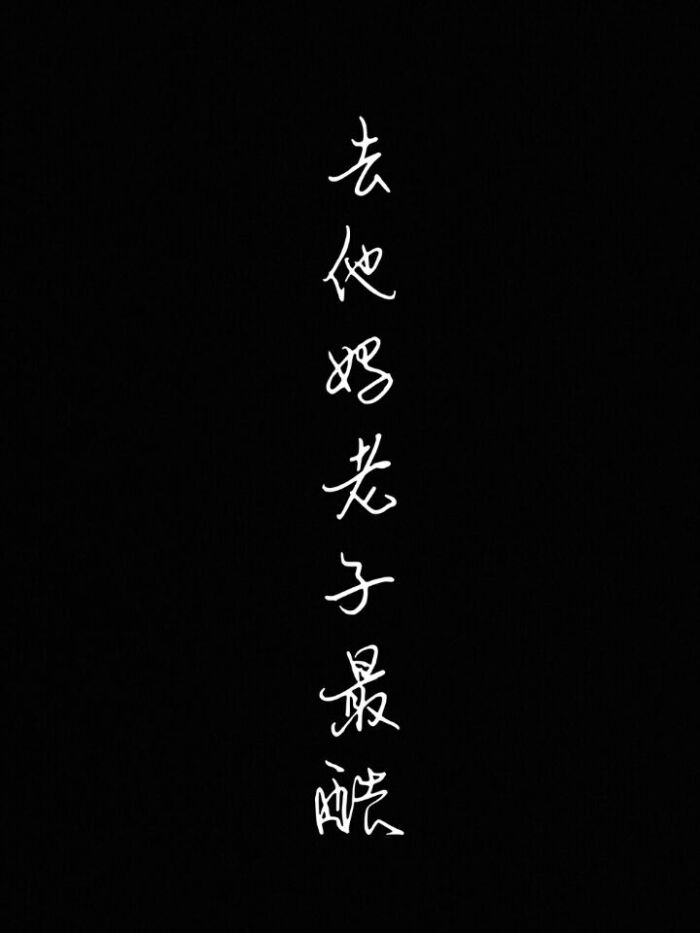 去他妈老子最酷